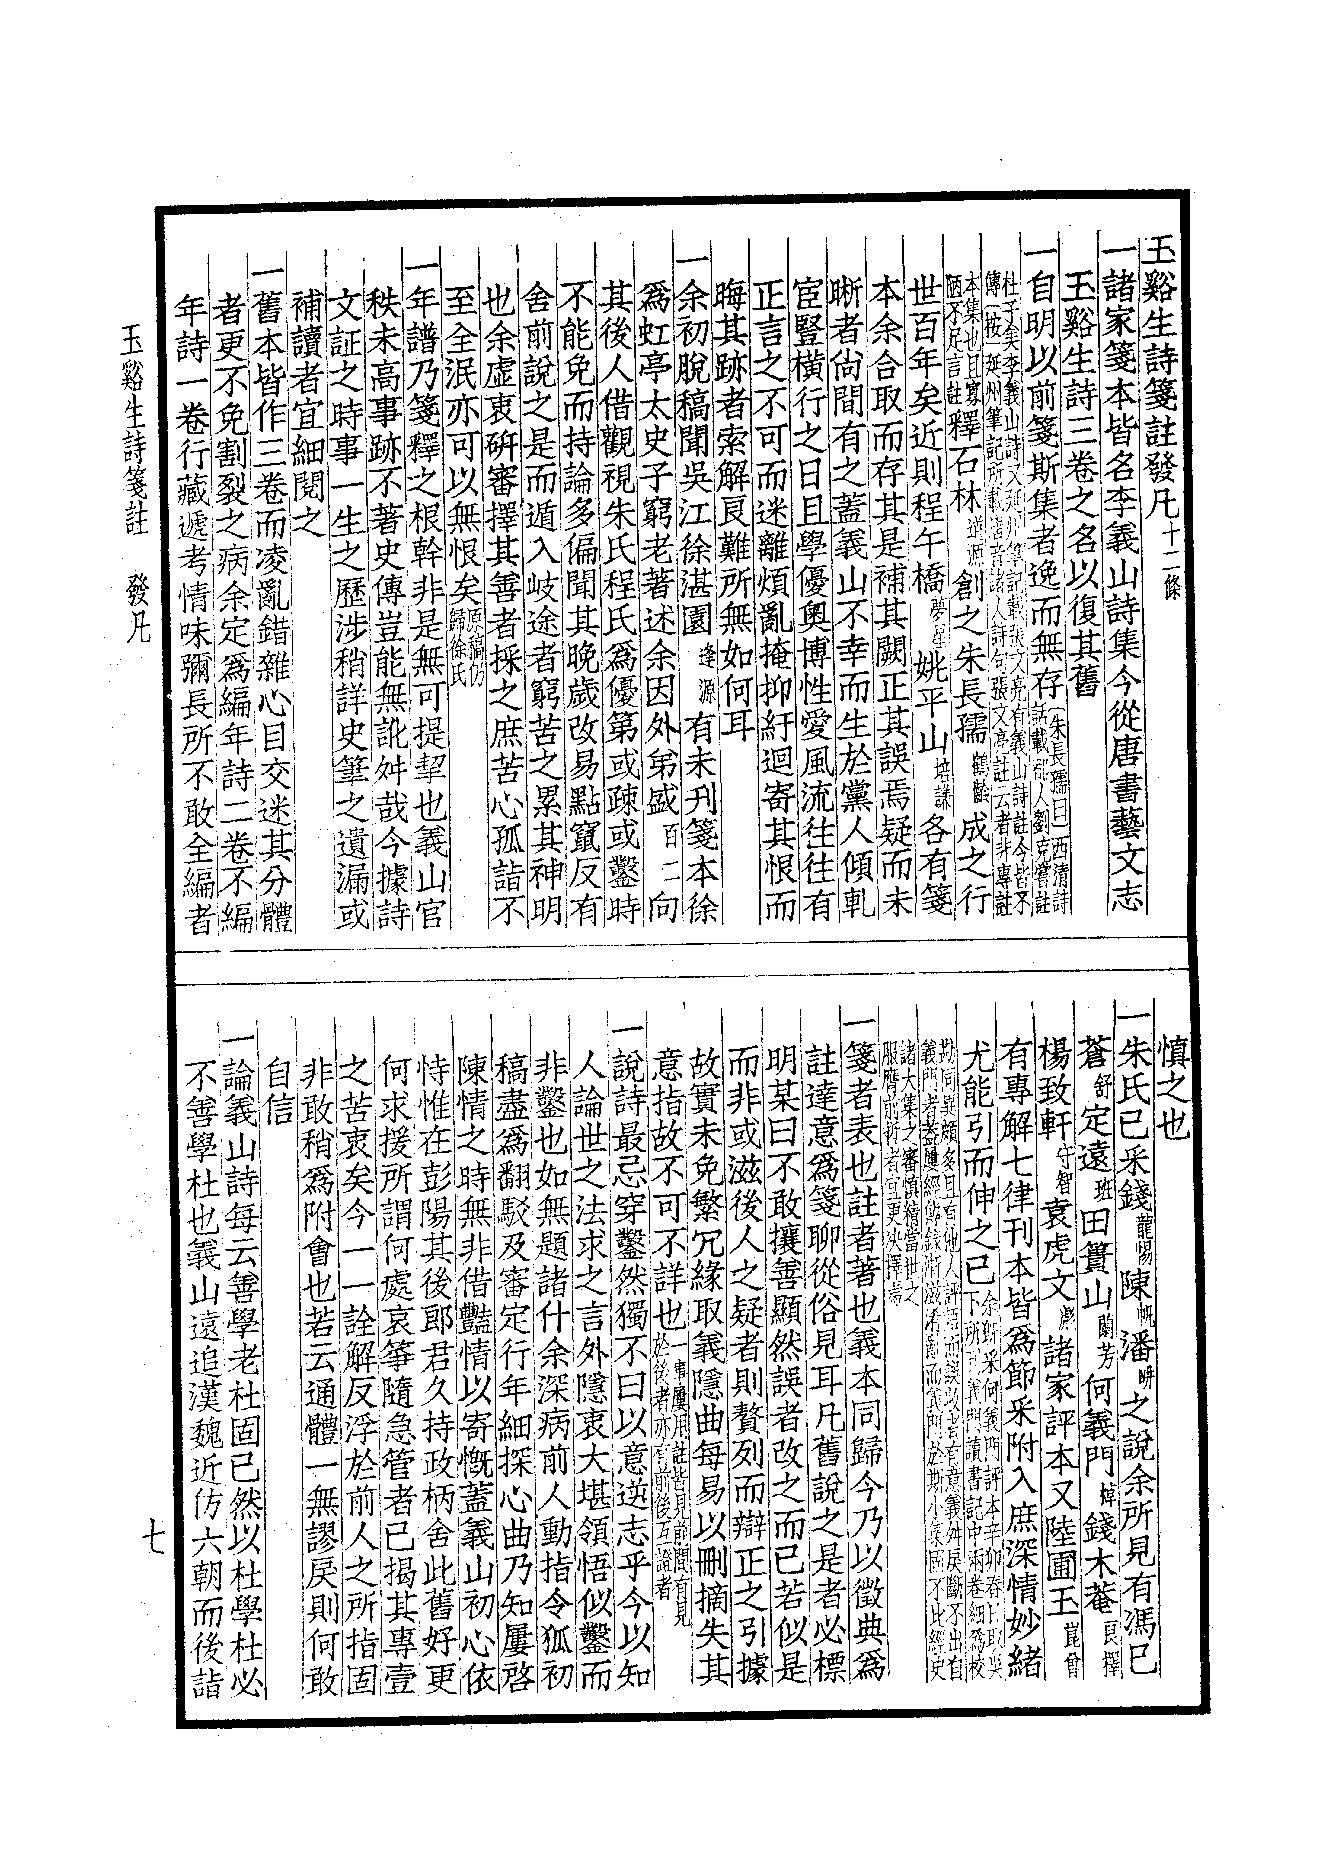 玉谿生詩箋註發凡十二條
一諸家箋本皆名李義山詩集今從唐書藝文志
玉谿生詩三卷之名以復其舊
一自明以前箋斯集者逸而無存朱長孺曰西清詩話載都人劉克嘗註
杜子美李義山詩又延州筆記載張文亮有義山詩註今皆不
傳按延州筆記所載唐音諸人詩句張文亭註云者非專註
本集也且寡陋不足言註釋石林道源創之朱長孺鶴齡成之行
世百年矣近則程午橋夢星姚平山培謙各有箋
本余合取而存其是補其闕正其誤焉疑而未
晰者尙間有之蓋義山不幸而生於黨人傾軋
宦豎橫行之日且學優奧博性愛風流往往有
正言之不可而迷離煩亂掩抑紆迴寄其恨而
晦其跡者索解良難所無如何耳
一余初脫稿聞吳江徐湛園逢源有未刋箋本徐
爲虹亭太史子窮老著述余因外弟盛百二向
其後人借觀視朱氏程氏爲優第或疎或鑿時
不能免而持論多偏聞其晚歲改易點竄反有
舍前說之是而遁入岐途者窮苦之累其神明
也余虛衷硏審擇其善者採之庶苦心孤詣不
至全泯亦可以無恨矣原稿仍歸徐氏
一年譜乃箋釋之根幹非是無可提挈也義山官
秩未高事跡不著史傳豈能無訛舛哉今據詩
文証之時事一生之歷涉稍詳史筆之遺漏或
補讀者宜細閱之
一舊本皆作三卷而凌亂錯雜心目交迷其分體
者更不免割裂之病余定爲編年詩二卷不編
年詩一卷行藏遞考情味彌長所不敢全編者
玉谿生詩箋註　發凡
愼之也
一朱氏已采錢龍惕陳帆潘畊之說余所見有馮已
蒼舒定遠班田簣山蘭芳何義門焯錢木菴良擇
楊致軒守智袁虎文彪諸家評本又陸圃玉崑曾
有專解七律刊本皆爲節采附入庶深情妙緒
尤能引而伸之已余所采何義門評本辛卯春上取吳
下所刊義門讀書記中兩卷細爲校
勘同異頗多且有他人評語而誤以者有意義舛戾斷不出自
義門者蓋屢經傳錄漸滋淆亂而義門於斯小集固不比經史
諸大集之審愼精當世之
服膺前哲者宜更決擇焉
一箋者表也註者著也義本同歸今乃以徵典爲
註達意爲箋聊從俗見耳凡舊說之是者必標
明某曰不敢攘善顯然誤者改之而已若似是
而非或滋後人之疑者則贅列而辯正之引據
故實未免繁冗緣取義隱曲每易以刪摘失其
意指故不可不詳也一事屢用註皆見前間有見
於後者亦宜前後互證者
一說詩最忌穿鑿然獨不曰以意逆志乎今以知
人論世之法求之言外隱衷大堪領悟似鑿而
非鑿也如無題諸什余深病前人動指令狐初
稿盡爲翻駁及審定行年細探心曲乃知屢啓
陳情之時無非借豔情以寄慨蓋義山初心依
恃惟在彭陽其後郎君久持政柄舍此舊好更
何求援所謂何處哀箏隨急管者已揭其專壹
之苦衷矣今一一詮解反浮於前人之所指固
非敢稍爲附會也若云通體一無謬戾則何敢
自信
一論義山詩每云善學老杜固已然以杜學杜必
不善學杜也義山遠追漢魏近仿六朝而後詣
七